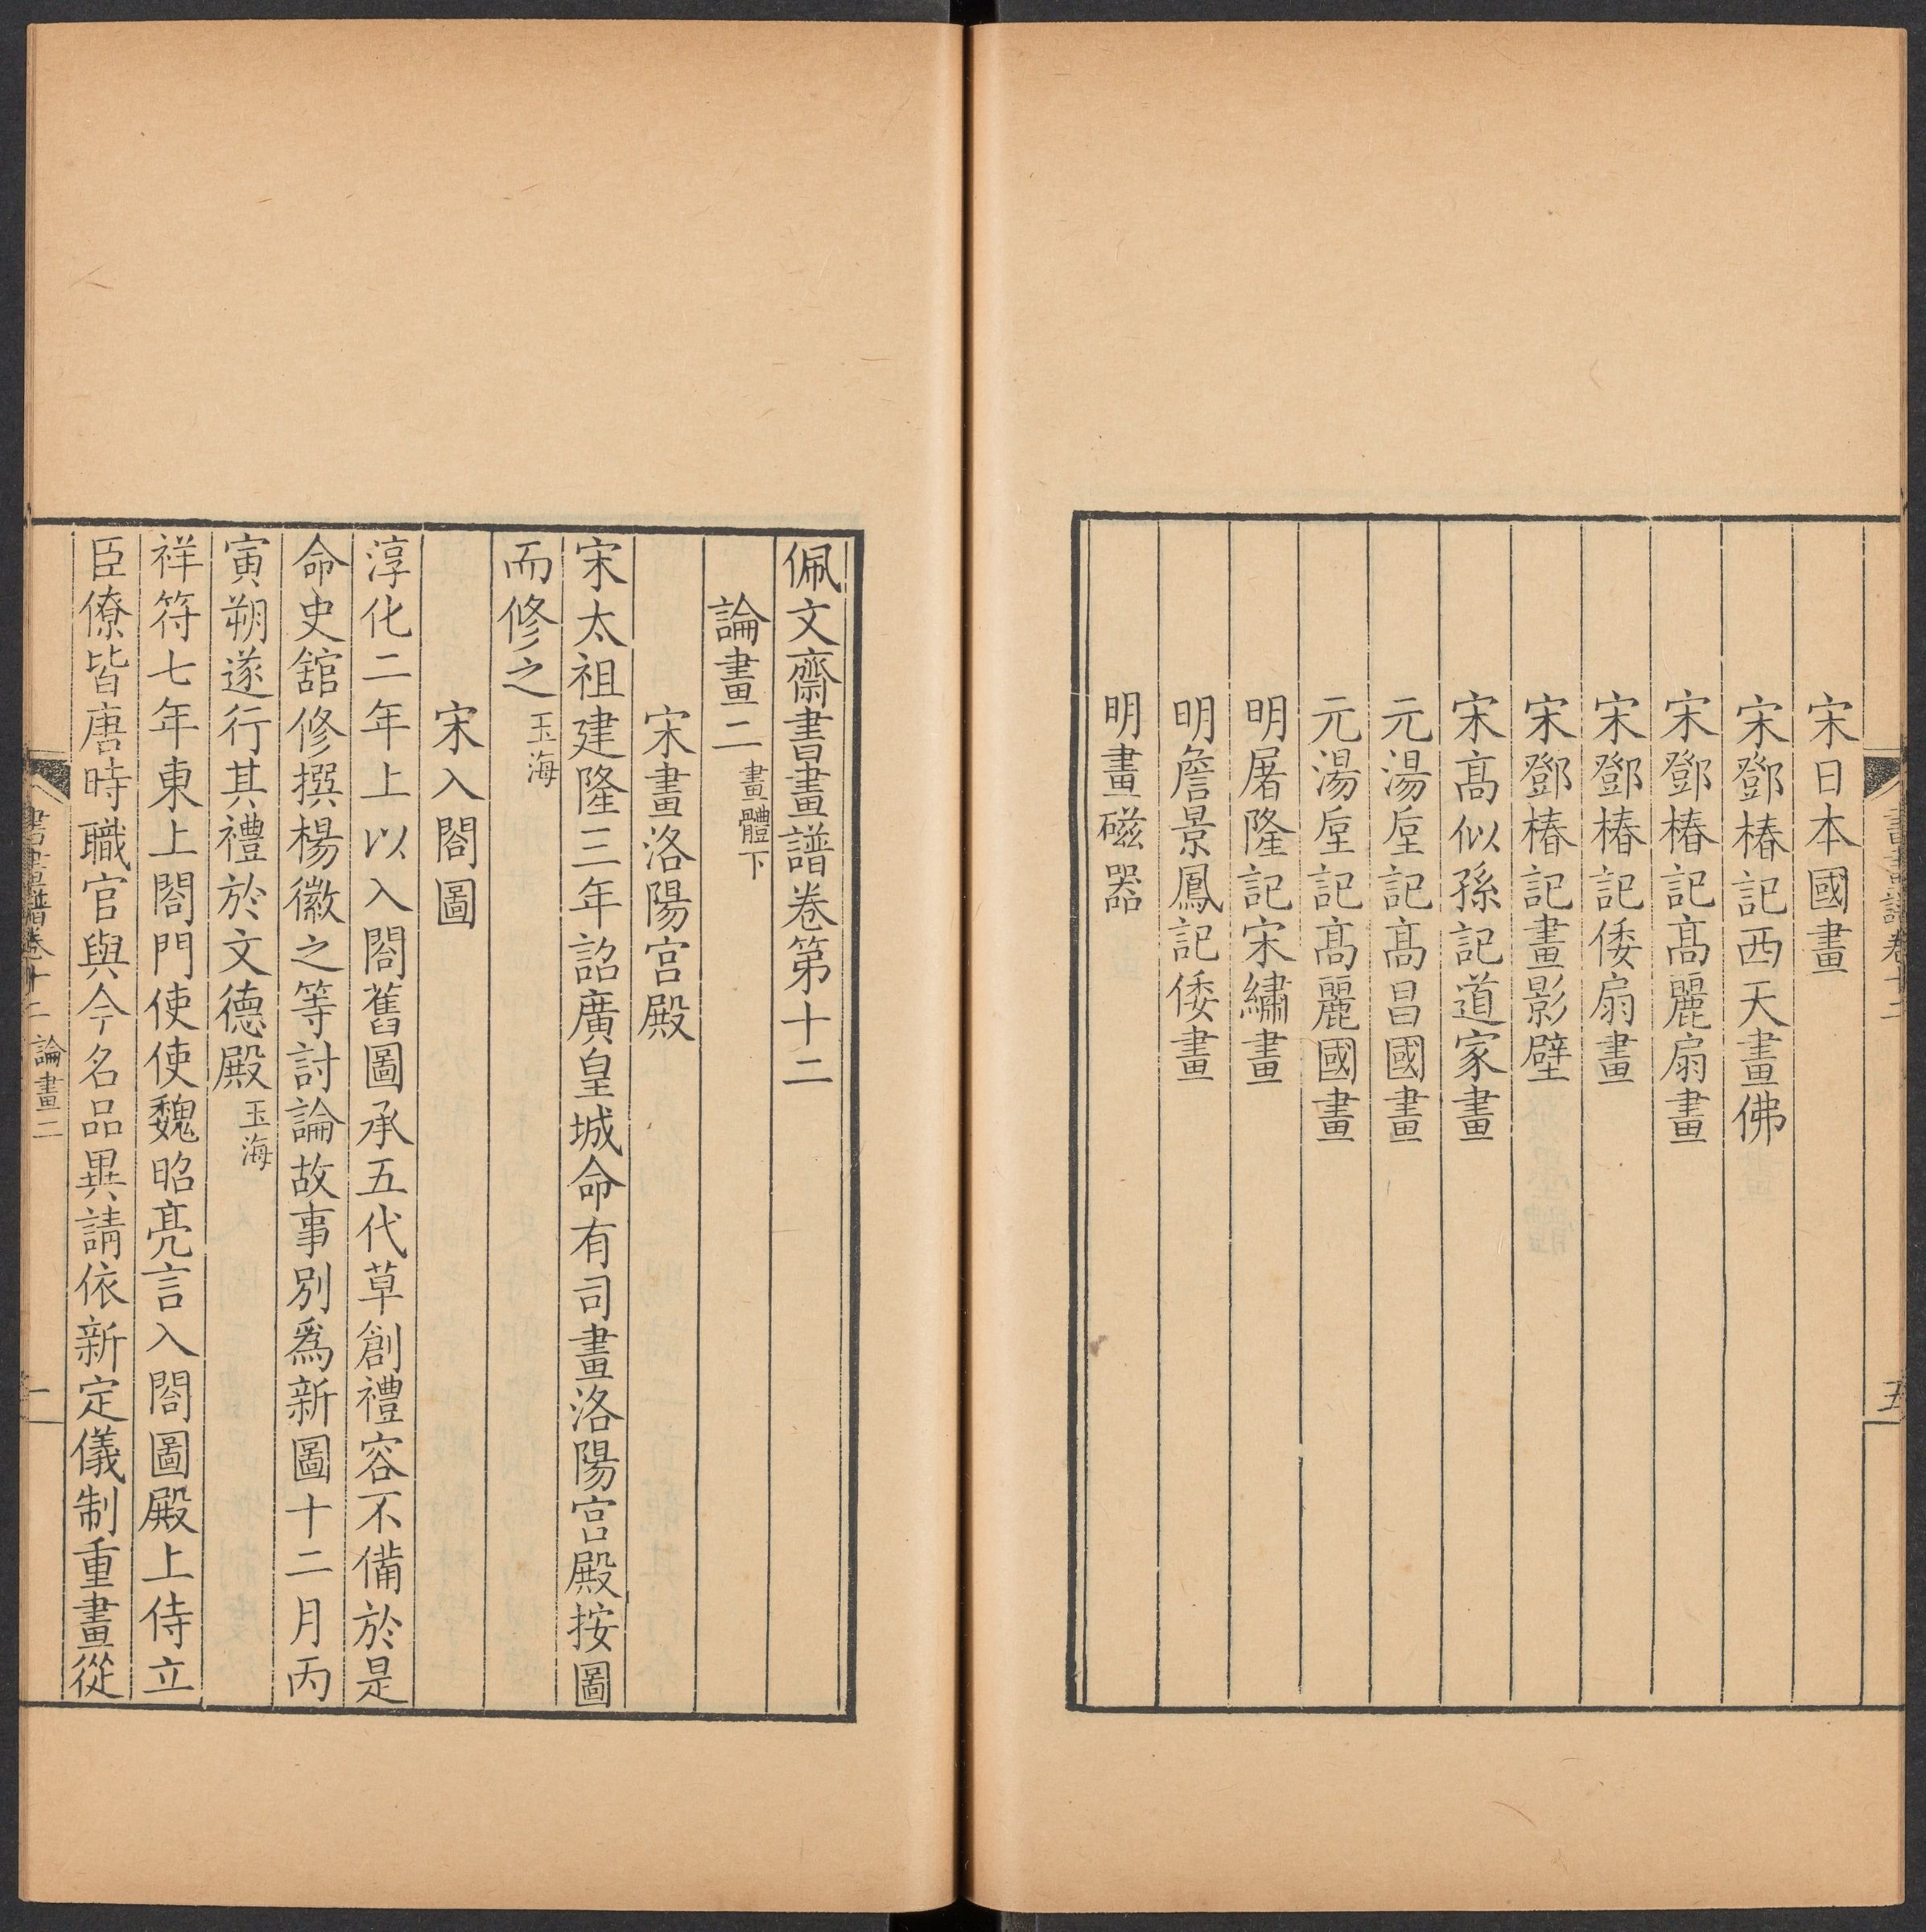 書畫譜卷十二
五
宋日本國畫
宋鄧椿記西天畫佛
宋鄧椿記髙麗扇畫
宋鄧椿記倭扇畫
宋鄧椿記畫影壁
宋髙似孫記道家畫
元湯垕記髙昌國畫
元湯垕記髙麗國畫
明屠隆記宋繡畫
明詹景鳳記倭畫
明畫磁器
佩文齋書畫譜卷第十二
論畫二 畫體下
宋畫洛陽宮殿
宋太祖建隆三年詔廣皇城命有司畫洛陽宮殿按圖
而修之 玉海
宋入閤圖
淳化二年上以入閤舊圖承五代草創禮容不備於是
命史舘修撰楊徽之等討論故事別爲新圖十二月丙
寅朔遂行其禮於文德殿 玉海
祥符七年東上閤門使使魏昭亮言入閤圖殿上侍立
臣僚皆唐時職官與今名品異請依新定儀制重畫從
書畫譜卷十二 論畫二